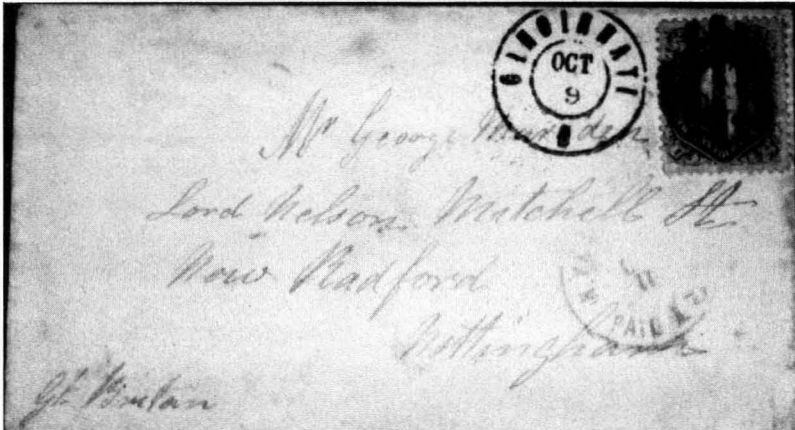 CINCINNATI
OCT
9
O
Mr George Marsden
Lord Nelson Mitchell St
New Radford
Nottingham
PAID
Gt Britan